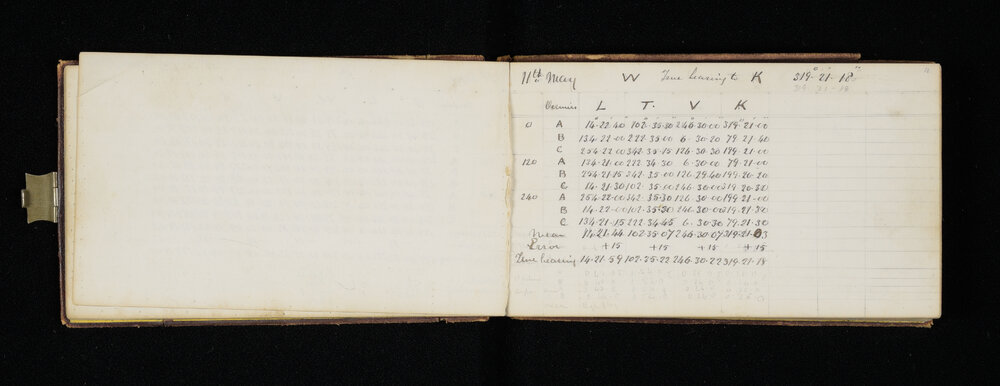 11th May W True bearing to K 319°-21'-18"
319-21-18
Vernier L T. V K
0 A 14-22-40 102-35-30 246-30-00 319-21-00
B 134-22-00 222-35-00 6-30-20 79-21-40
C 254-22-00 342-35-15 126-30-30 199-21-00
120 A 134-21-00 222-34-30 6-30-00 79-21-00
B 254-21-15 342-35-00 126-29-40 199-20-20
C 14-21-30 102-35-00 246-30-00 319-20-30
240 A 254-22-00 342-35-30 126-30-00 199-21-00
B 14-22-00 102-35-30 246-30-00 319-21-30
C 134-21-15 222-34-45 6-30-30 79-21-30
Mean 14-21-44 102-35-07 246-30-07 319-21-03
Error +15 +15 +15 +15
True bearing 14-21-59 102-35-22 246-30-22 319-21-18